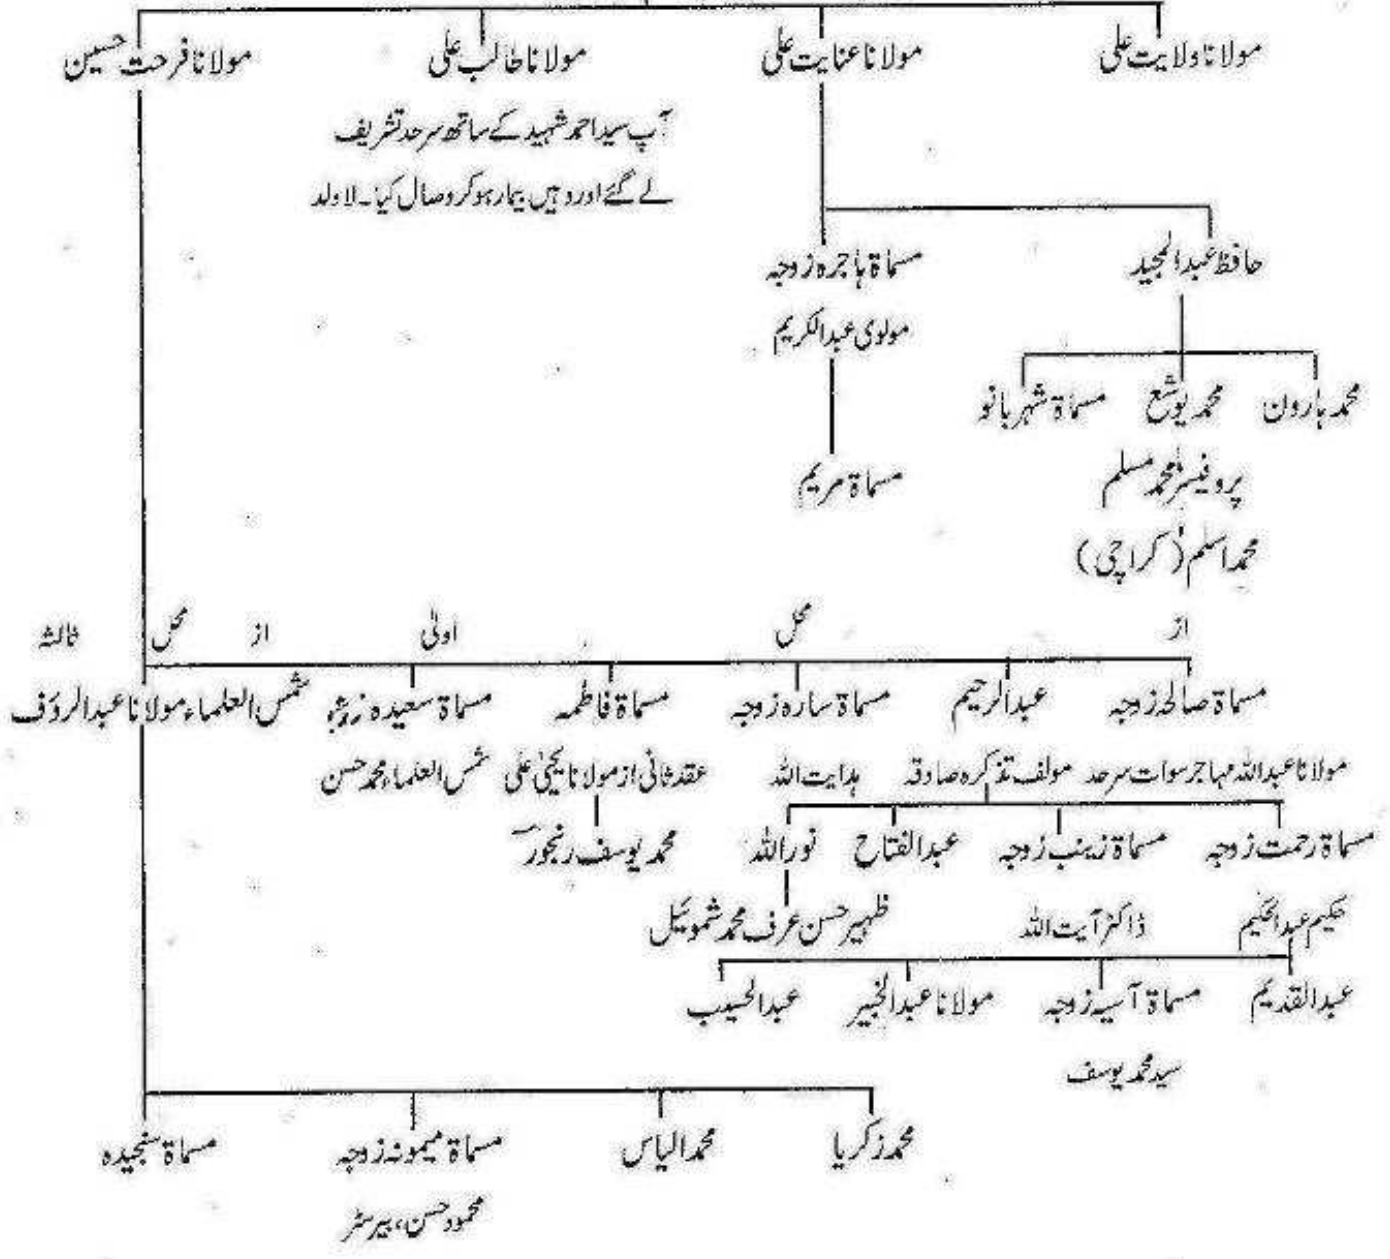 مولانا ولایت علی مولانا عنایت علی مولانا طالب علی مولانا فرحت حسین
آپ سید احمد شہید کے ساتھ سرحد تشریف
لے گئے اور وہیں بیمار ہو کر وصال کیا۔ لا ولد
حافظ عبدالمجید مسماۃ ہاجرہ زوجہ
مولوی عبدالکریم
محمد ہارون محمد یوشع مسماۃ شہر بانو
پروفیسر محمد مسلم مسماۃ مریم
محمد اسلم (کراچی)
از محل اولیٰ از محل ثالثہ
مسماۃ صالحہ زوجہ عبدالرحیم مسماۃ سارہ زوجہ مسماۃ فاطمہ مسماۃ سعیدہ زوجہ شمس العلماء مولانا عبدالرؤف
مولانا عبداللہ مہاجر سوات سرحد مولف تذکرہ صادقہ ہدایت اللہ عقد ثانی از مولانا یحییٰ علی شمس العلماء محمد حسن
مسماۃ رحمت زوجہ مسماۃ زینب زوجہ عبدالفتاح نور اللہ محمد یوسف رنجور
حکیم عبدالحکیم ڈاکٹر آیت اللہ ظہیر حسن عرف محمد شموئیل
عبدالقدیم مسماۃ آسیہ زوجہ مولانا عبدالخبیر عبدالحسیب
سید محمد یوسف
محمد زکریا محمد الیاس مسماۃ میمونہ زوجہ مسماۃ سنجیدہ
محمود حسن، بیرسٹر